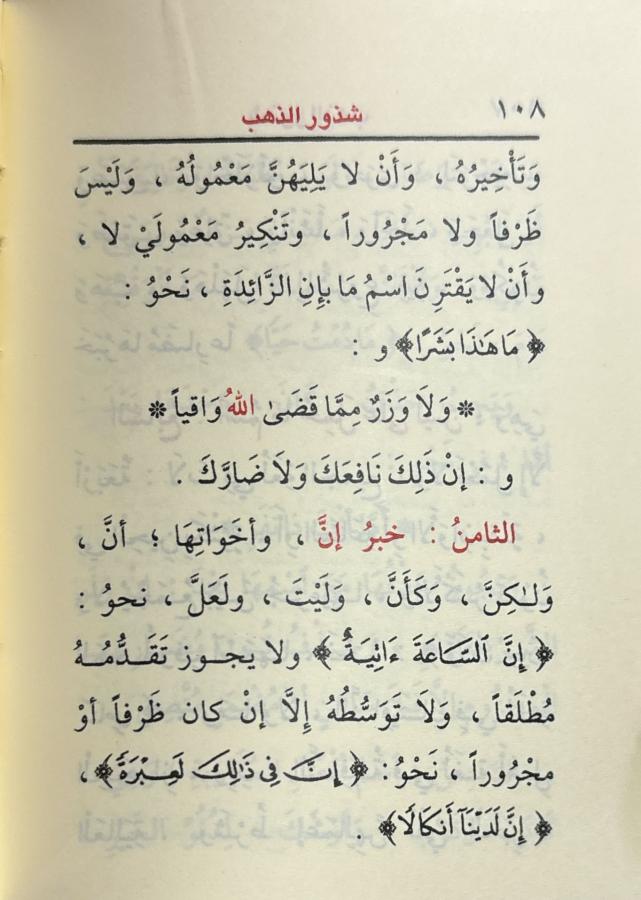 ١٠٨ شذور الذهب
وَتَأْخِيرُهُ ، وَأَنْ لا يَلِيَهُنَّ مَعْمُولُهُ ، وَلَيْسَ
ظَرْفاً ولا مَجْرُوراً ، وتَنْكِيرُ مَعْمُولَيْ لا ،
وأَنْ لا يَقْتَرِنَ اسْمُ مَا بِإِنِ الزَّائِدَةِ ، نَحْوُ :
﴿ مَا هَٰذَا بَشَرًا ﴾ و :
* وَلَا وَزَرٌ مِمَّا قَضَىٰ اللهُ وَاقياً *
و : إنْ ذَلِكَ نَافِعَكَ وَلَا ضَارَّكَ .
الثامنُ : خبرُ إنَّ ، وأخَوَاتِهَا ؛ أنَّ ،
وَلَـٰكِنَّ ، وَكَأَنَّ ، وَلَيْتَ ، ولَعَلَّ ، نحوُ :
﴿ إِنَّ ٱلسَّاعَةَ ءَاتِيَةٌ ﴾ ولا يجوز تَقَدُّمُهُ
مُطْلَقاً ، وَلَا تَوَسُّطُهُ إِلَّا إنْ كان ظَرْفاً أوْ
مجْرُوراً ، نَحْوُ : ﴿ إِنَّ فِى ذَٰلِكَ لَعِبْرَةً ﴾ ،
﴿ إِنَّ لَدَيْنَآ أَنكَالًا ﴾ .